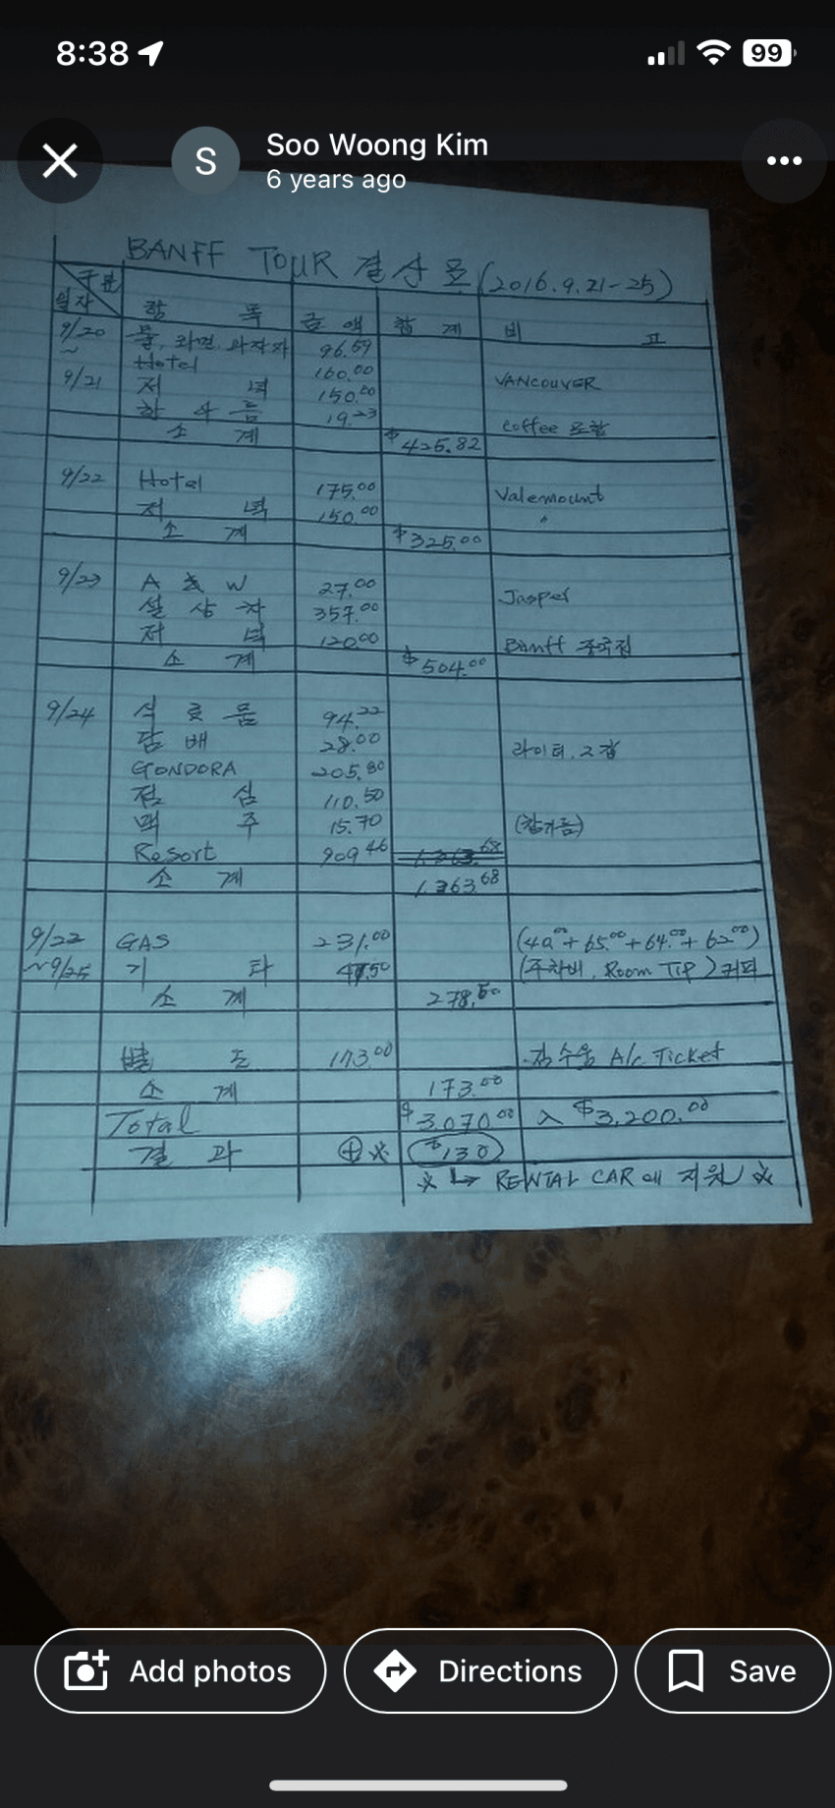 8:38
99
Soo Woong Kim
S
6 years ago
BANFF TOUR 결산표(2016.9.21-25)
구분
일자 항 목 금 액 합 계 비 고
9/20 물, 라면, 과자 96.59
~ Hotel 160.00 VANCOUVER
9/21 저 녁 150.00
19.23 Coffee 포함
소 계 $425.82
9/22 Hotel 175.00 Valemount
저 녁 150.00 〃
소 계 $325.00
9/23 A & W 27.00 Jasper
설 상 차 357.00
저 녁 120.00 Banff 중국집
소 계 $504.00
9/24 식 료 품 94.22
담 배 28.00 라이터, 2갑
GONDORA 205.80
점 심 110.50
맥 주 15.70
Resort 909.46
소 계 1,363.68
9/22 GAS 231.00 (40.00+65.00+64.00+62.00)
~9/25 기 타 47.50 (주차비, Room TIP) 커피
소 계 278.50
별 도 173.00 A/C Ticket
소 계 173.00
Total $3,070.00 入 $3,200.00
결 과 ⊕※ $130
※ ↳ RENTAL CAR에 지원 ※
Add photos
Directions
Save